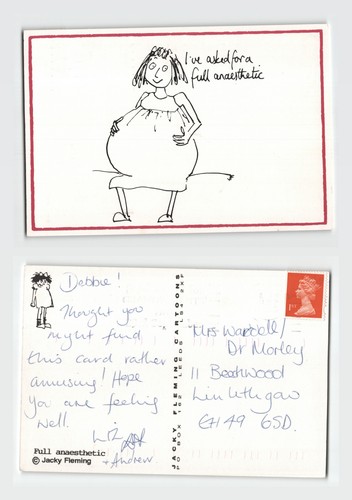 I've asked for a
full anaesthetic
Debbie!
Thought you
might find
this card rather
amusing! Hope
you are feeling
well.
Liz
+ Andrew
Full anaesthetic
© Jacky Fleming
JACKY FLEMING CARTOONS
PO BOX
LEEDS
1st
Mrs Waddell/
Dr Morley
11 Beechwood
Linlithgow
EH49 6SD.